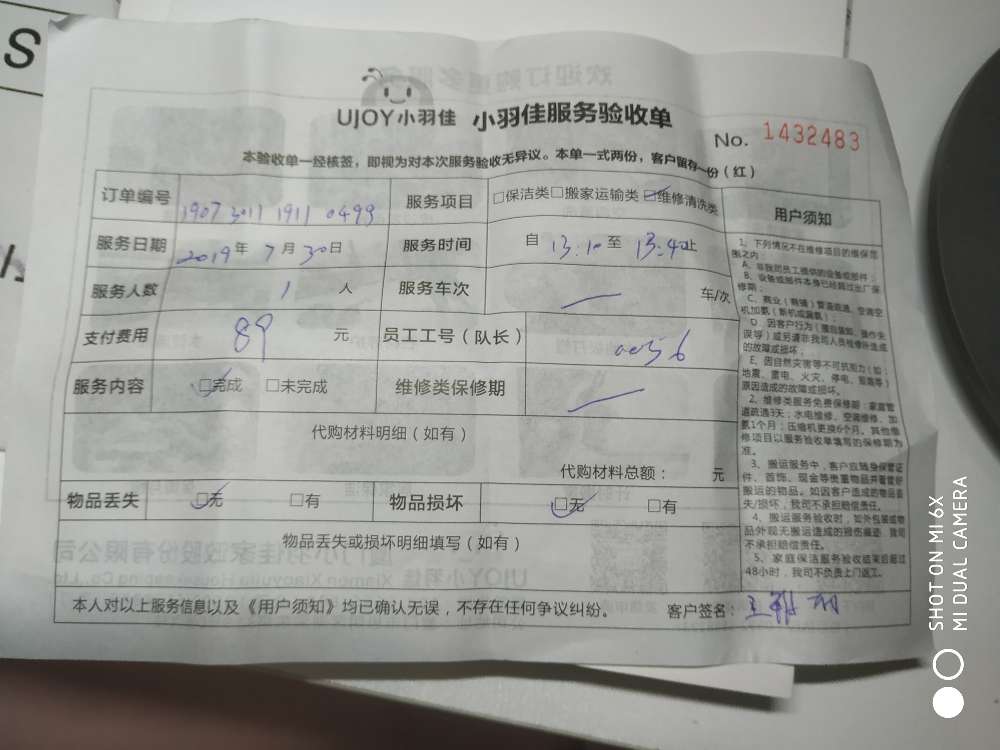 UJOY小羽佳 小羽佳服务验收单
No. 1432483
本验收单一经核签，即视为对本次服务验收无异议。本单一式两份，客户留存一份（红）
订单编号 1907 3011 1911 0499 服务项目 □保洁类□搬家运输类☑维修清洗类
服务日期 2019年 7月30日 服务时间 自 13:10 至 13:40 止
服务人数 1 人 服务车次 车/次
支付费用 89 元 员工工号（队长）
服务内容 ☑完成 □未完成 维修类保修期
代购材料明细（如有）
代购材料总额： 元
物品丢失 ☑无 □有 物品损坏 ☑无 □有
物品丢失或损坏明细填写（如有）
本人对以上服务信息以及《用户须知》均已确认无误，不存在任何争议纠纷。 客户签名：
用户须知
1、下列情况不在维修项目的维保范
围之内：
A、非我司员工提供的设备或部件；
B、设备或部件本身已经超过出厂保
修期；
C、商业（商铺）管道疏通、空调空
机加氨
D、因客户行为
误等）或另请非我司人员检修所造成
的故障或损坏；
E、因自然灾害等不可抗拒力（如：
地震、雷电、火灾、停电、
原因造成的故障或损坏。
2、维修类服务免费保修期：家庭管
道疏通3天；水电维修、空调维修、加
氨1个月；压缩机更换6个月。其他维
修项目以服务验收单填写的保修期为
准。
3、搬运服务中，客户应随身保管证
件、首饰、现金等贵重物品并看管好
搬运的物品。如因客户造成的物品丢
失/损坏，我司不承担赔偿责任。
4、搬运服务验收时，如外包装或物
品外观无搬运造成的损伤痕迹，我司
不承担赔偿责任。
5、家庭保洁服务验收结束后超过
48小时，我司不负责上门返工。
SHOT ON MI 6X
MI DUAL CAMERA